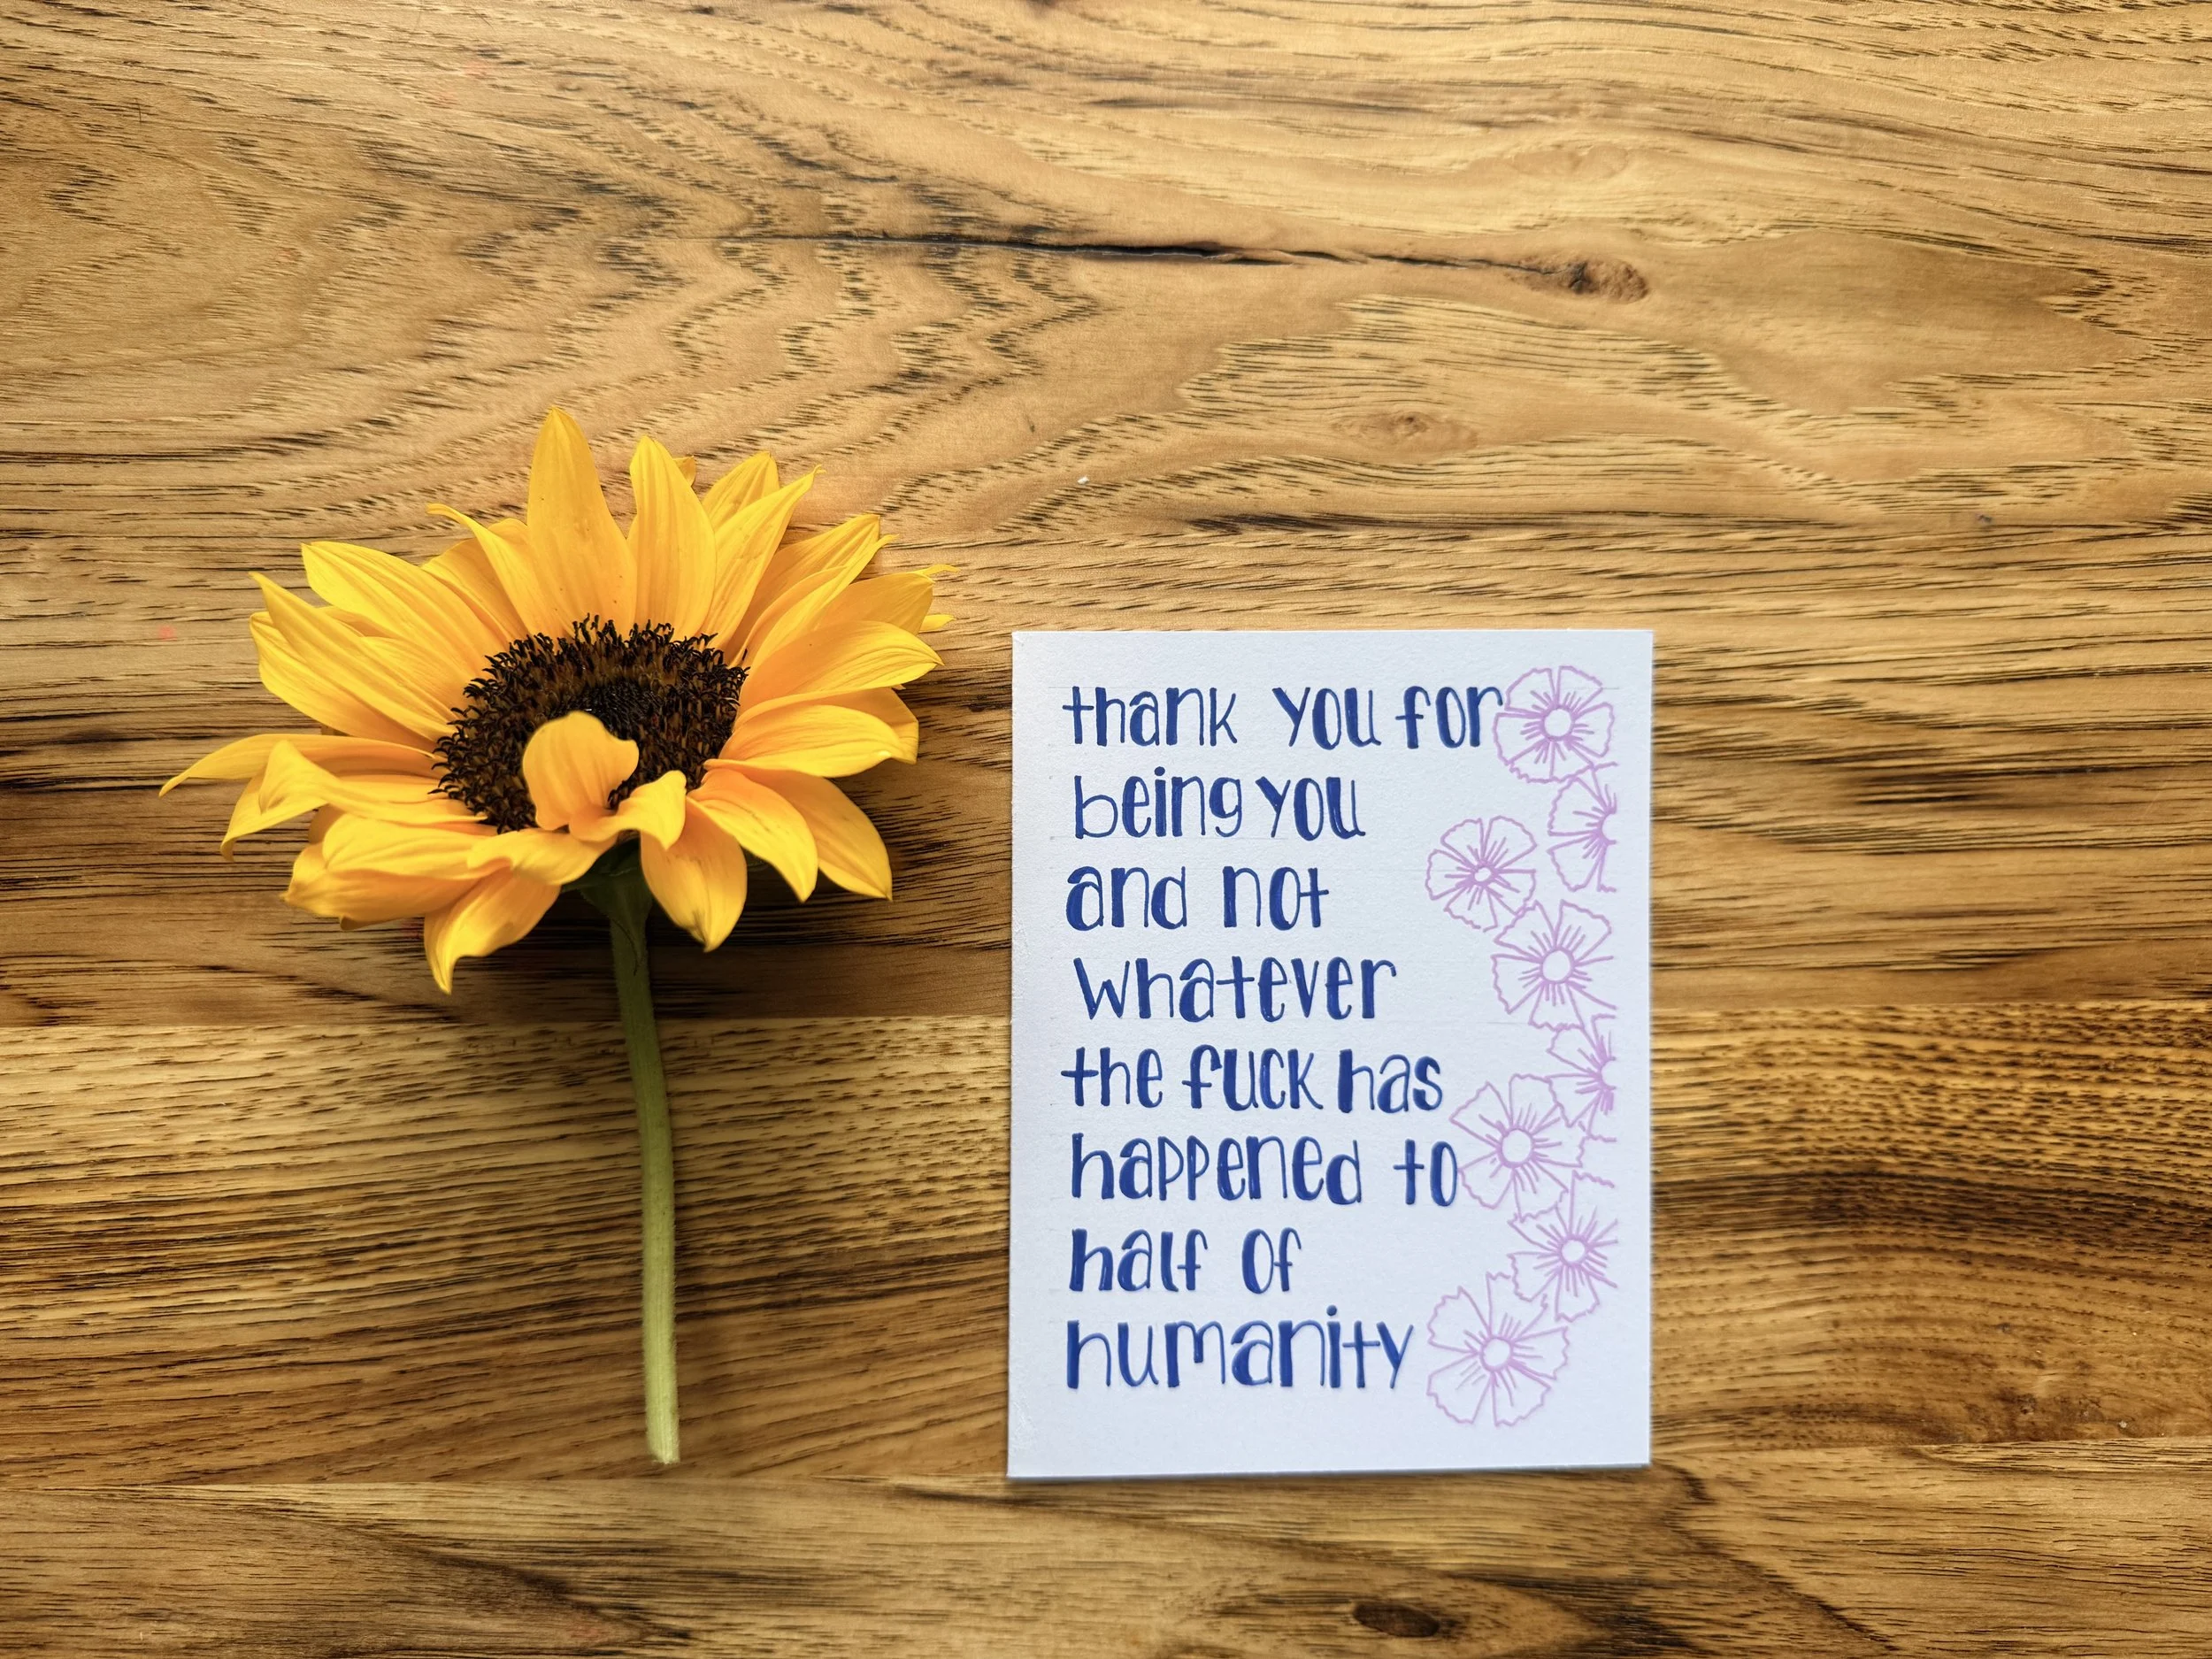 thank you for
being you
and not
whatever
the fuck has
happened to
half of
humanity